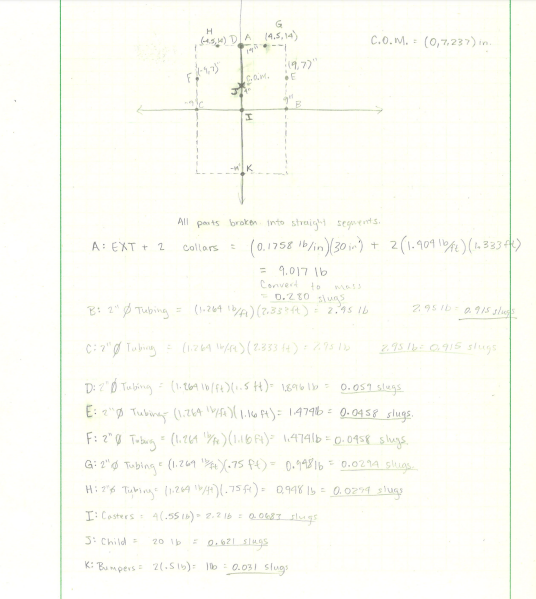 H G
(-4.5,14) D A (4.5,14)
14"
C.O.M. = (0,7.237) in.
F (-9,7) (9,7)" E
C.O.M.
J
-9" C 9" B
I
-14" K
All parts broken into straight segments.
A: EXT + 2 collars = (0.1758 lb/in)(30 in) + 2(1.909 lb/ft)(1.333 ft)
= 9.017 lb
Convert to mass
= 0.280 slugs
B: 2" Ø Tubing = (1.264 lb/ft)(2.333 ft) = 2.95 lb 2.95 lb = 0.915 slugs
C: 2" Ø Tubing = (1.264 lb/ft)(2.333 ft) = 2.95 lb 2.95 lb = 0.915 slugs
D: 2" Ø Tubing = (1.264 lb/ft)(1.5 ft) = 1.896 lb = 0.059 slugs
E: 2" Ø Tubing = (1.264 lb/ft)(1.16 ft) = 1.479 lb = 0.0458 slugs.
F: 2" Ø Tubing = (1.264 lb/ft)(1.16 ft) = 1.479 lb = 0.0458 slugs.
G: 2" Ø Tubing = (1.264 lb/ft)(.75 ft) = 0.948 lb = 0.0294 slugs.
H: 2" Ø Tubing = (1.264 lb/ft)(.75 ft) = 0.948 lb = 0.0294 slugs
I: Casters = 4(.55 lb) = 2.2 lb = 0.0683 slugs
J: Child = 20 lb = 0.621 slugs
K: Bumpers = 2(.5 lb) = 1 lb = 0.031 slugs